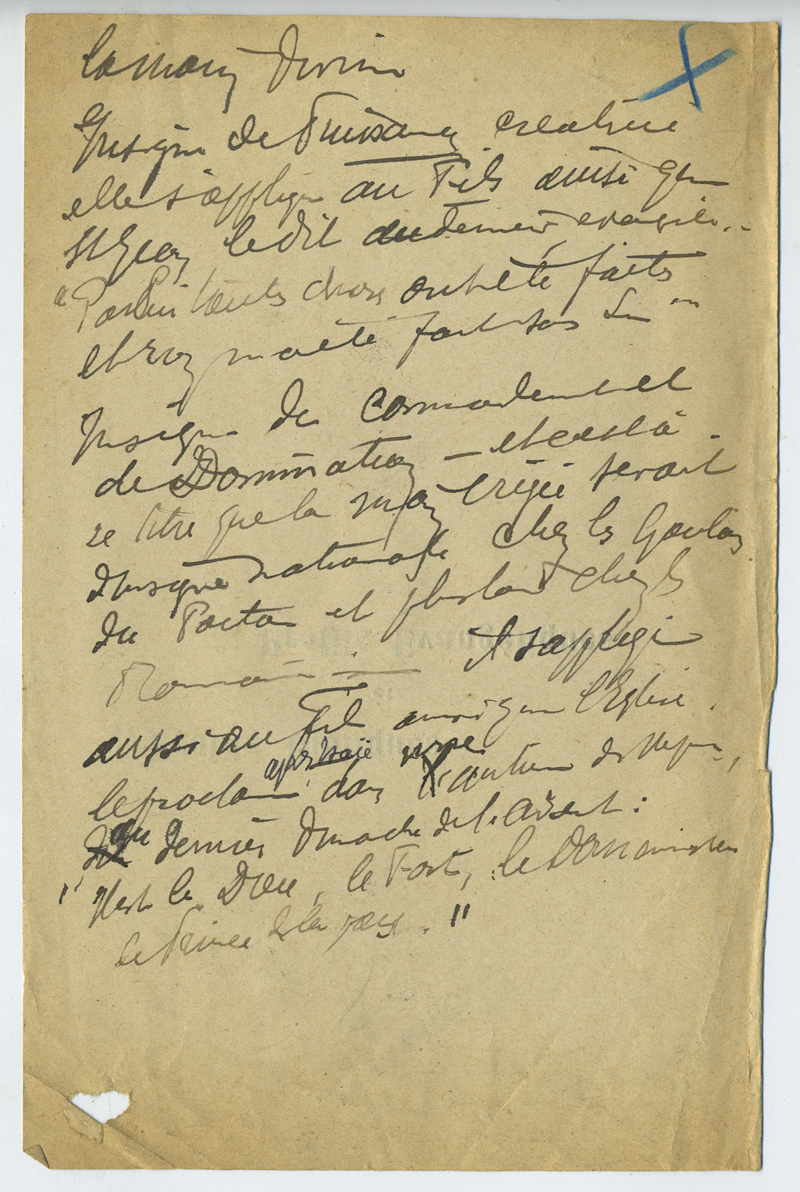 La main Divine
Insigne de Puissance créatrice
elle s'applique au Fils ainsi que
St Jean le dit au dernier évangile..
"Par Lui toutes choses ont été faites
et rien n'a été fait sans Lui"
Insigne de Commandement et
de Domination – et c'est à
ce titre que la main érigée servait
d'insigne nationale chez les Gaulois
du Poitou et flottant chez les
Romains – Il s'applique
aussi au Fils ainsi que l'Eglise
le proclame après Isaïe dans l'antienne de Vêpres,
du dernier dimanche de l'Avent :
"C'est le Dieu, le Fort, le Dominateur
le Prince de la paix."